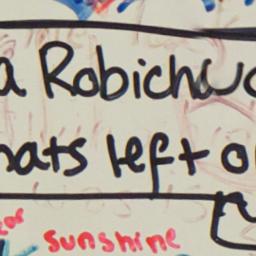 a Robichu
hats left o
ear
sunshine